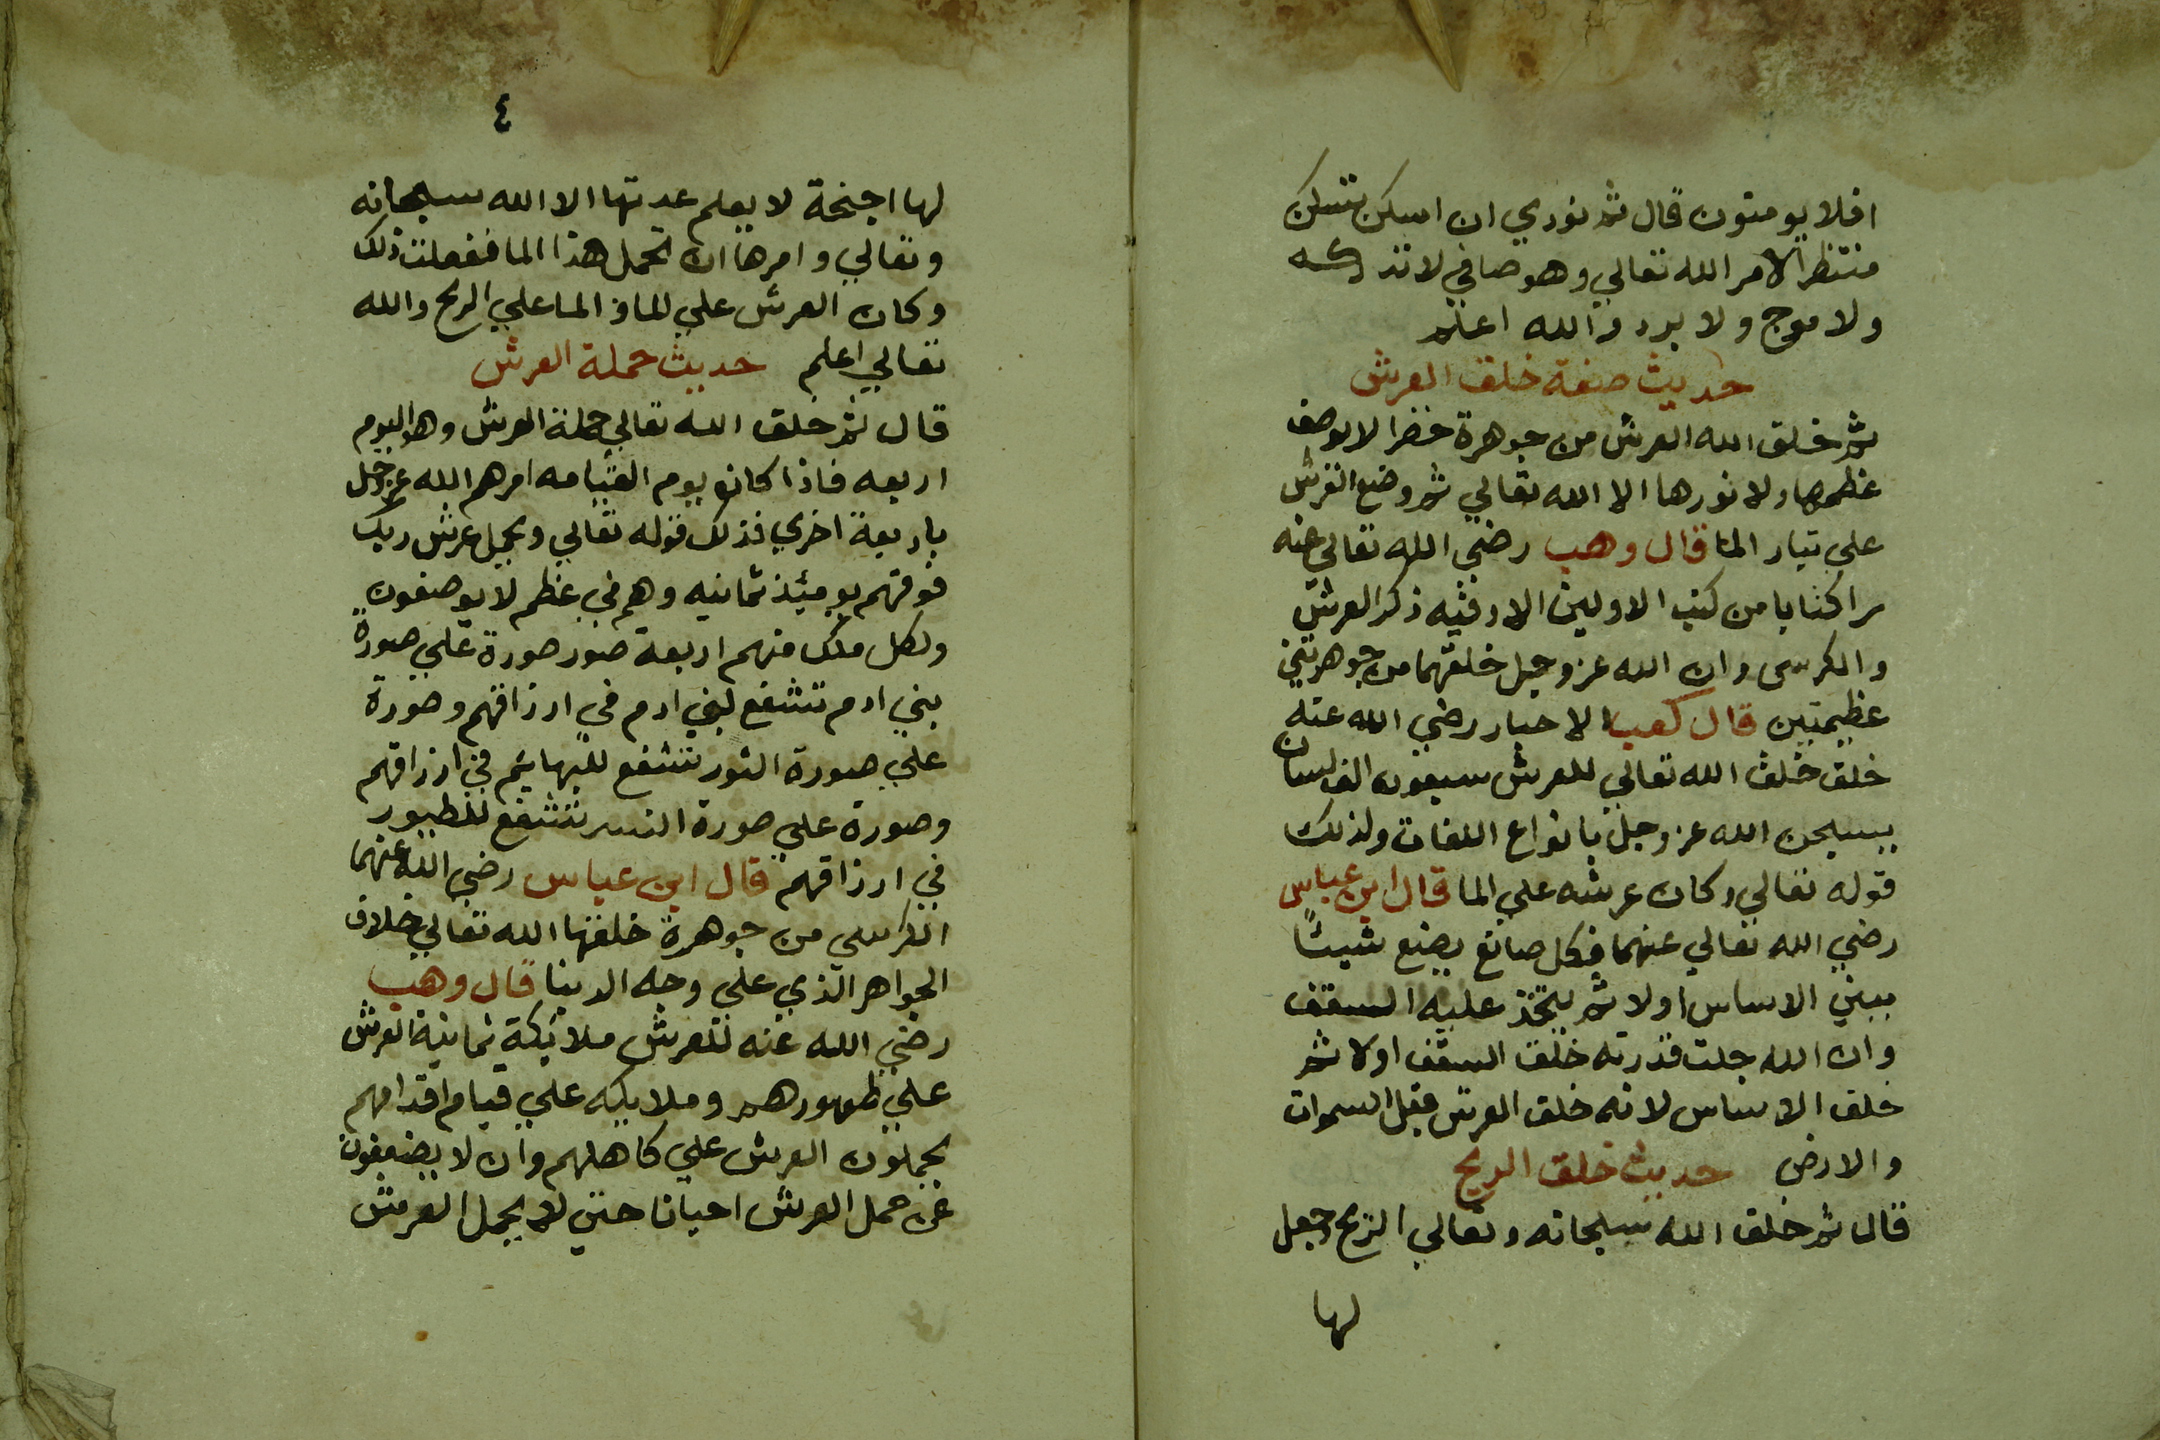 افلا يومنون قال ثم نودي ان اسكن فسكن
منتظرا لامر الله تعالي وهو صافي لا تدركه
ولا موج ولا برد والله اعلم
حديث صفة خلق العرش
ثم خلق الله العرش من جوهرة خضرا لا يوصف
عظمها ولا نورها الا الله تعالي ثم وضع العرش
علي تيار الما قال وهب رضي الله تعالي عنه
كتابا من كتب الاولين الا وفيه ذكر العرش
والكرسي وان الله عز وجل خلقهما من جوهرتين
عظيمتين قال كعب الاحبار رضي الله عنه
خلق خلق الله تعالي للعرش سبعون الف لسان
يسبحن الله عز وجل بانواع اللغات ولذلك
قوله تعالي وكان عرشه علي الما قال ابن عباس
رضي الله تعالي عنهما فكل صانع يصنع شيئًا
يبني الاساس اولا ثم يتخذ عليه السقف
وان الله جلت قدرته خلق السقف اولا ثم
خلق الاساس لانه خلق العرش قبل السموات
والارض حديث خلق الريح
قال ثم خلق الله سبحانه وتعالي الريح وجعل
لها
٤
لها اجنحة لا يعلم عدتها الا الله سبحانه
وتعالي وامرها ان تحمل هذا الما ففعلت ذلك
وكان العرش علي الما والما علي الريح والله
تعالي اعلم حديث حملة العرش
قال ثم خلق الله تعالي حملة العرش وهم اليوم
اربعه فاذا كانو يوم القيامه امرهم الله عز وجل
باربعة اخري فذلك قوله تعالي ويحمل عرش ربك
فوقهم يومئيذ ثمانيه وهم في عظم لا يوصفون
ولكل ملك منهم اربعة صور صورة علي صورة
بني ادم تشفع لبني ادم في ارزاقهم وصورة
علي صورة الثور تتشفع للبهايم في ارزاقهم
وصورة علي صورة النسر تتشفع للطيور
في ارزاقهم قال ابن عباس رضي الله عنهما
الكرسي من جوهرة خلقها الله تعالي خلاف
الجواهر الذي علي وجه الدنيا قال وهب
رضي الله عنه للعرش ملائيكة ثمانية العرش
علي ظهورهم وملايكه علي قيام اقدامهم
يحملون العرش علي كاهلهم وان لا يضعفون
عن حمل العرش احيانا حتي لا يحمل العرش